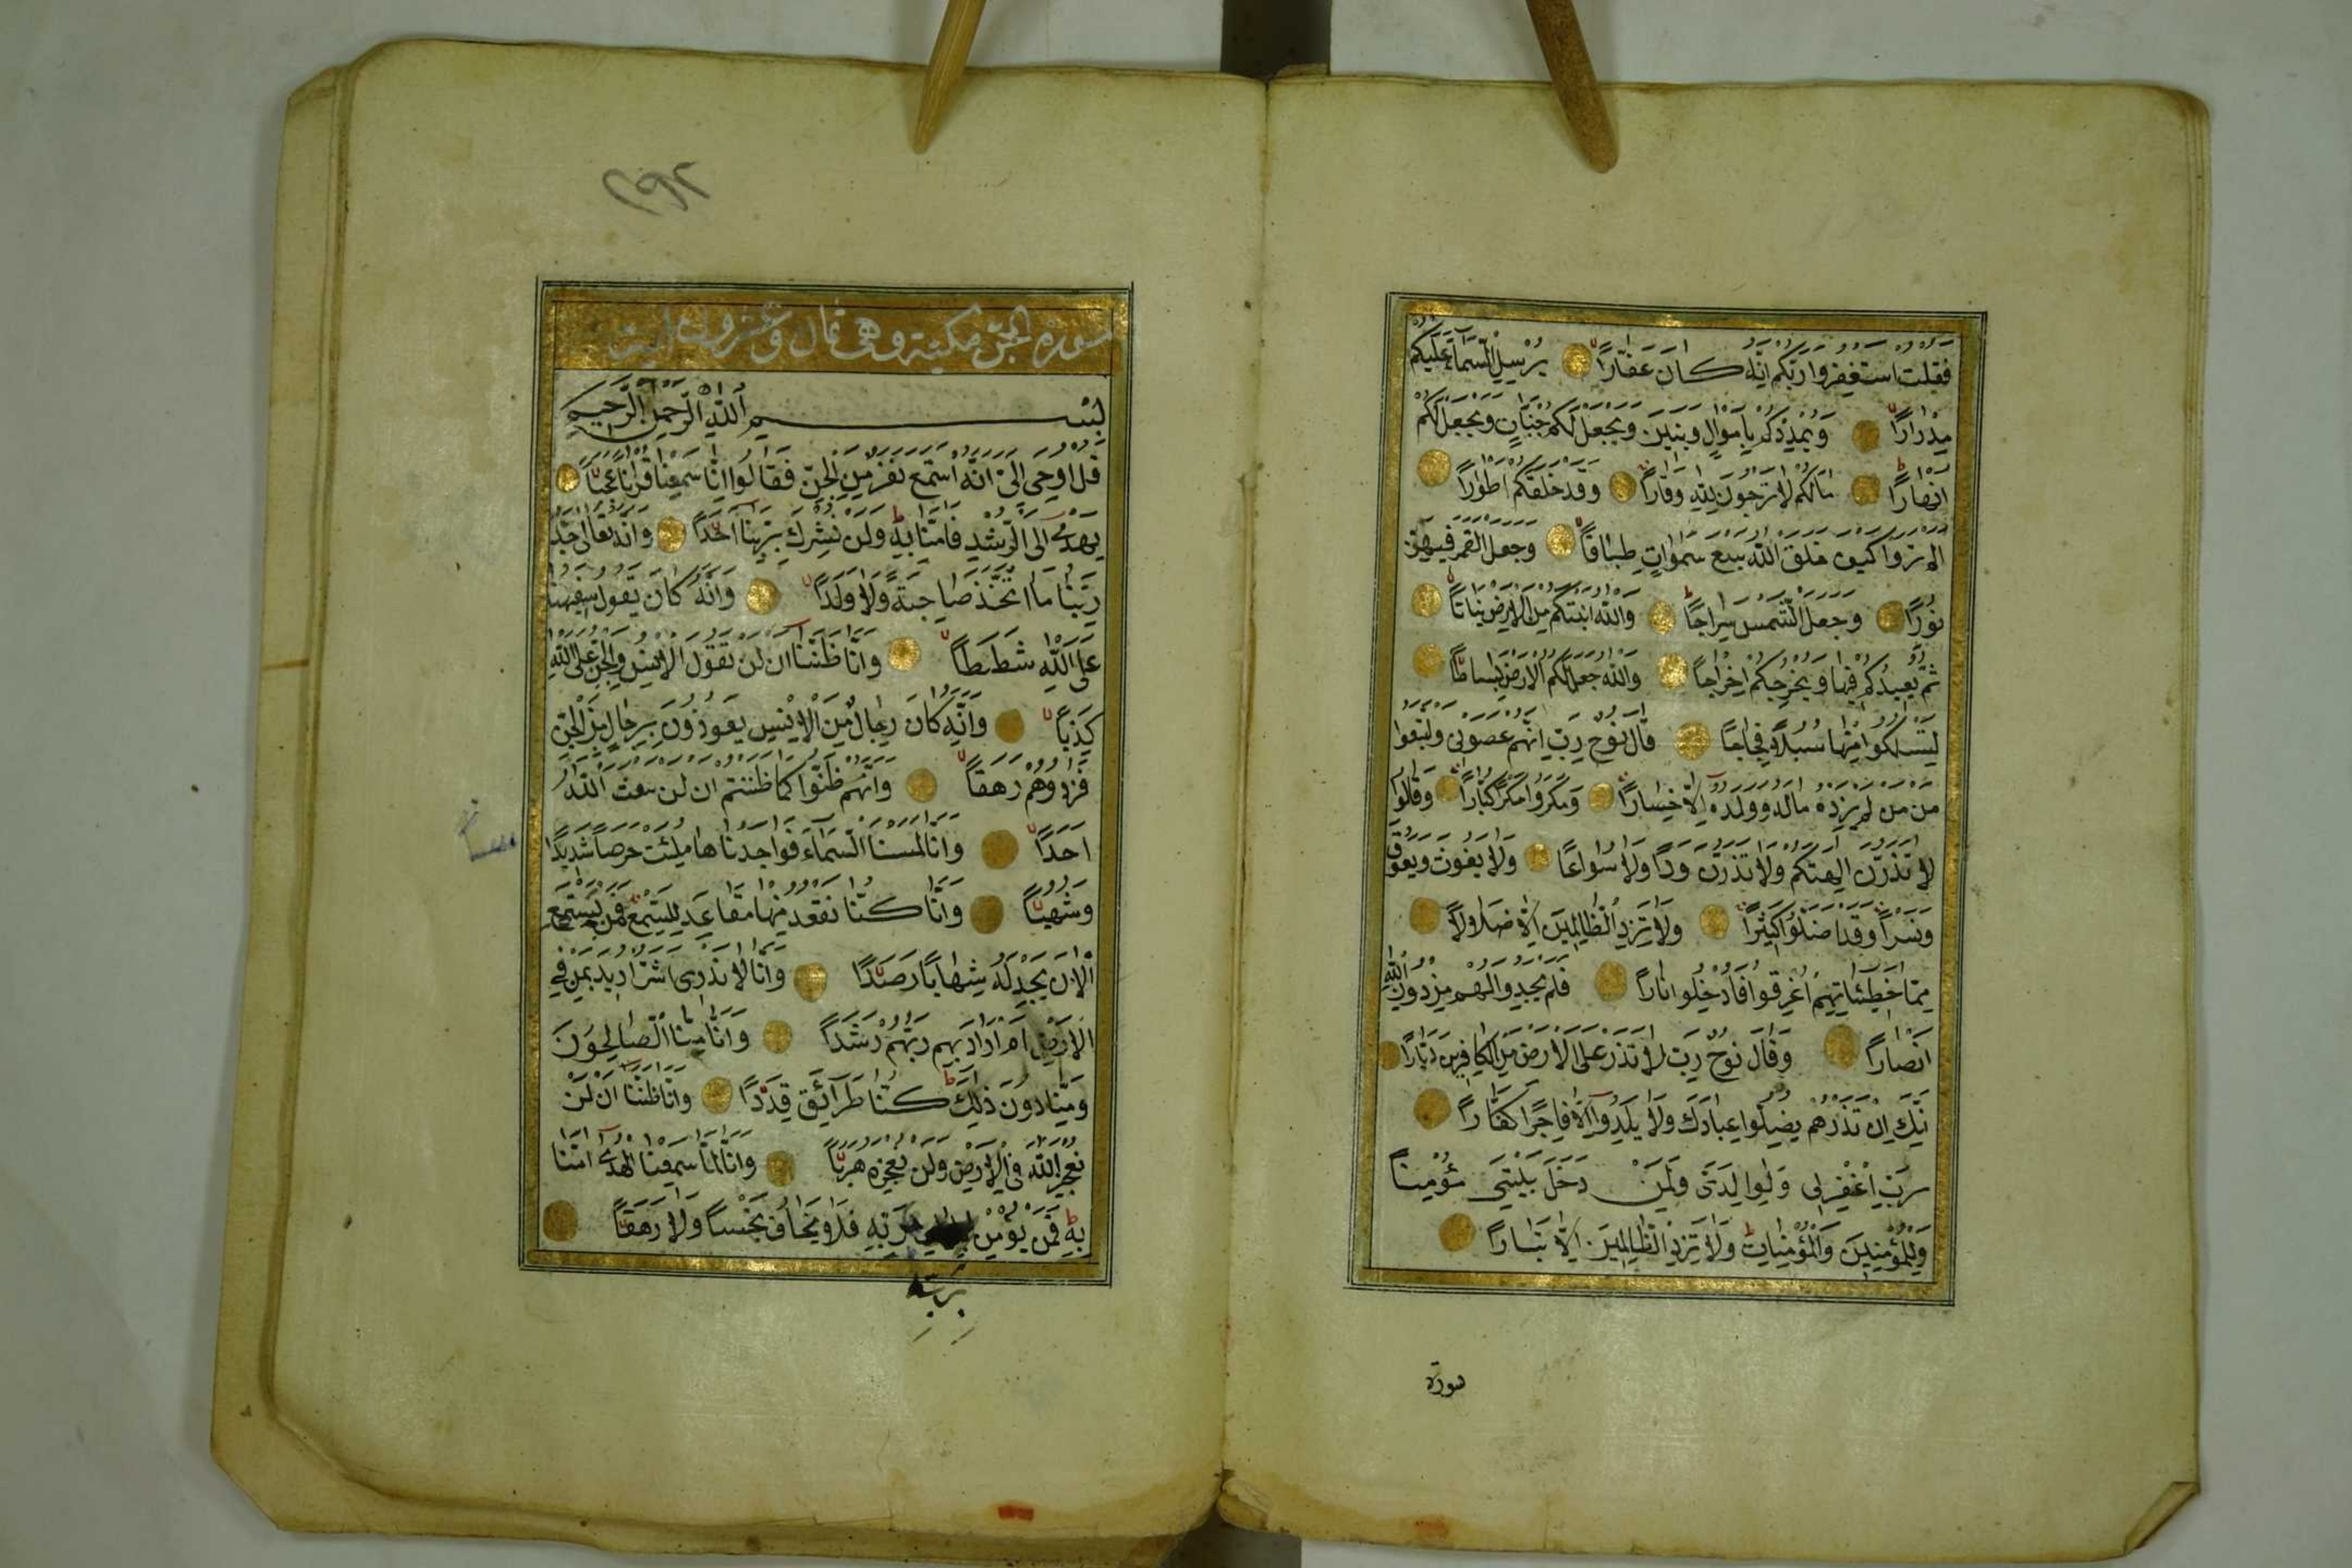 فقلت استغفروا ربكم انه كان غفارا يرسل السماء عليكم
مدرارا ويمددكم باموال وبنين ويجعل لكم جنات ويجعل لكم
انهارا مالكم لا ترجون لله وقارا وقد خلقكم اطوارا
الم تروا كيف خلق الله سبع سموات طباقا وجعل القمر فيهن
نورا وجعل الشمس سراجا والله انبتكم من الارض نباتا
ثم يعيدكم فيها ويخرجكم اخراجا والله جعل لكم الارض بساطا
لتسلكوا منها سبلا فجاجا قال نوح رب انهم عصونى واتبعوا
من من لم يزده ماله وولده الا خسارا ومكروا مكرا كبارا وقالوا
لا تذرن الهتكم ولا تذرن ودا ولا سواعا ولا يغوث ويعوق
ونسرا وقد اضلوا كثيرا ولا تزد الظالمين الا ضلالا
مما خطيئاتهم اغرقوا فادخلوا نارا فلم يجدوا لهم من دون الله
انصارا وقال نوح رب لا تذر على الارض من الكافرين ديارا
انك ان تذرهم يضلوا عبادك ولا يلدوا الا فاجرا كفارا
رب اغفر لى ولوالدى ولمن دخل بيتى مؤمنا
وللمؤمنين والمؤمنات ولا تزد الظالمين الا تبارا
سورة
٢٩٢
سورة الجن مكية وهى ثمان وعشرون اية
بسم الله الرحمن الرحيم
قل اوحى الى انه استمع نفر من الجن فقالوا انا سمعنا قرانا عجبا
يهدى الى الرشد فامنا به ولن نشرك بربنا احدا وانه تعالى جد
ربنا ما اتخذ صاحبة ولا ولدا وانه كان يقول سفيهنا
على الله شططا وانا ظننا ان لن تقول الانس والجن على الله
كذبا وانه كان رجال من الانس يعوذون برجال من الجن
فزادوهم رهقا وانهم ظنوا كما ظننتم ان لن يبعث الله
احدا وانا لمسنا السماء فواجدناها ملئت حرصا شديدا
وشهبا وانا كنا نقعد منها مقاعد للسمع فمن يستمع
الان يجد له شهابا رصدا وانا لا ندرى اشر اريد بمن فى
الارض ام اراد بهم ربهم رشدا وانا منا الصالحون
ومنا دون ذلك كنا طرائق قددا وانا ظننا ان لن
نعجز الله فى الارض ولن نعجزه هربا وانا لما سمعنا الهدى امنا
به فمن يؤمن بربه فلا يخاف بخسا ولا رهقا
بربه